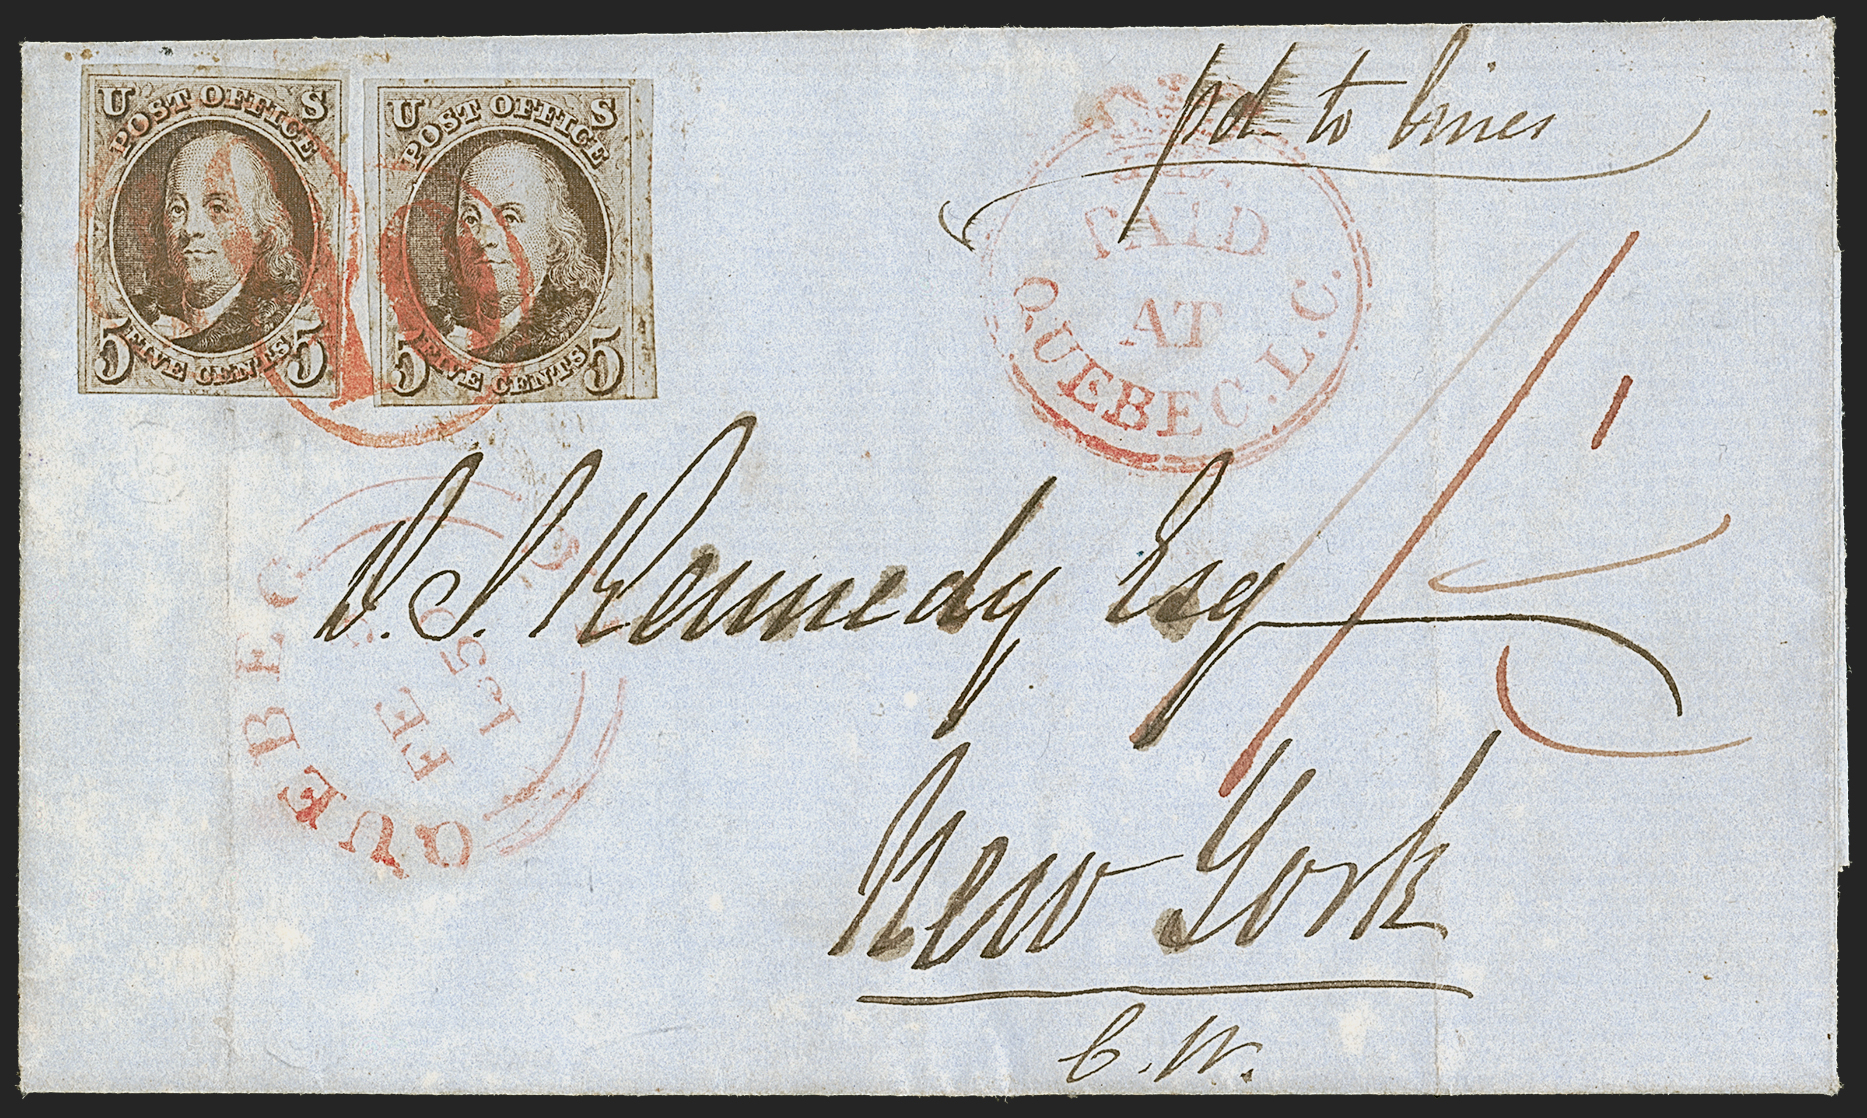 U S
POST OFFICE
5 FIVE CENTS 5
U S
POST OFFICE
5 FIVE CENTS 5
10
pd to lines
PAID
AT
QUEBEC. L.C.
1/1
QUEBEC
FE
15
D. S. Kennedy Esq
New York
C.W.